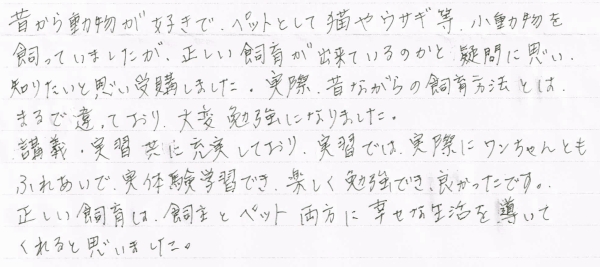 昔から動物が好きで、ペットとして猫やウサギ等、小動物を
飼っていましたが、正しい飼育が出来ているのかと、疑問に思い、
知りたいと思い受講しました。実際、昔ながらの飼育方法とは、
まるで違っており、大変勉強になりました。
講義・実習共に充実しており、実習では、実際にワンちゃんとも
ふれあいで、実体験学習でき、楽しく勉強でき、良かったです。
正しい飼育は、飼主とペット両方に幸せな生活を導いて
くれると思いました。